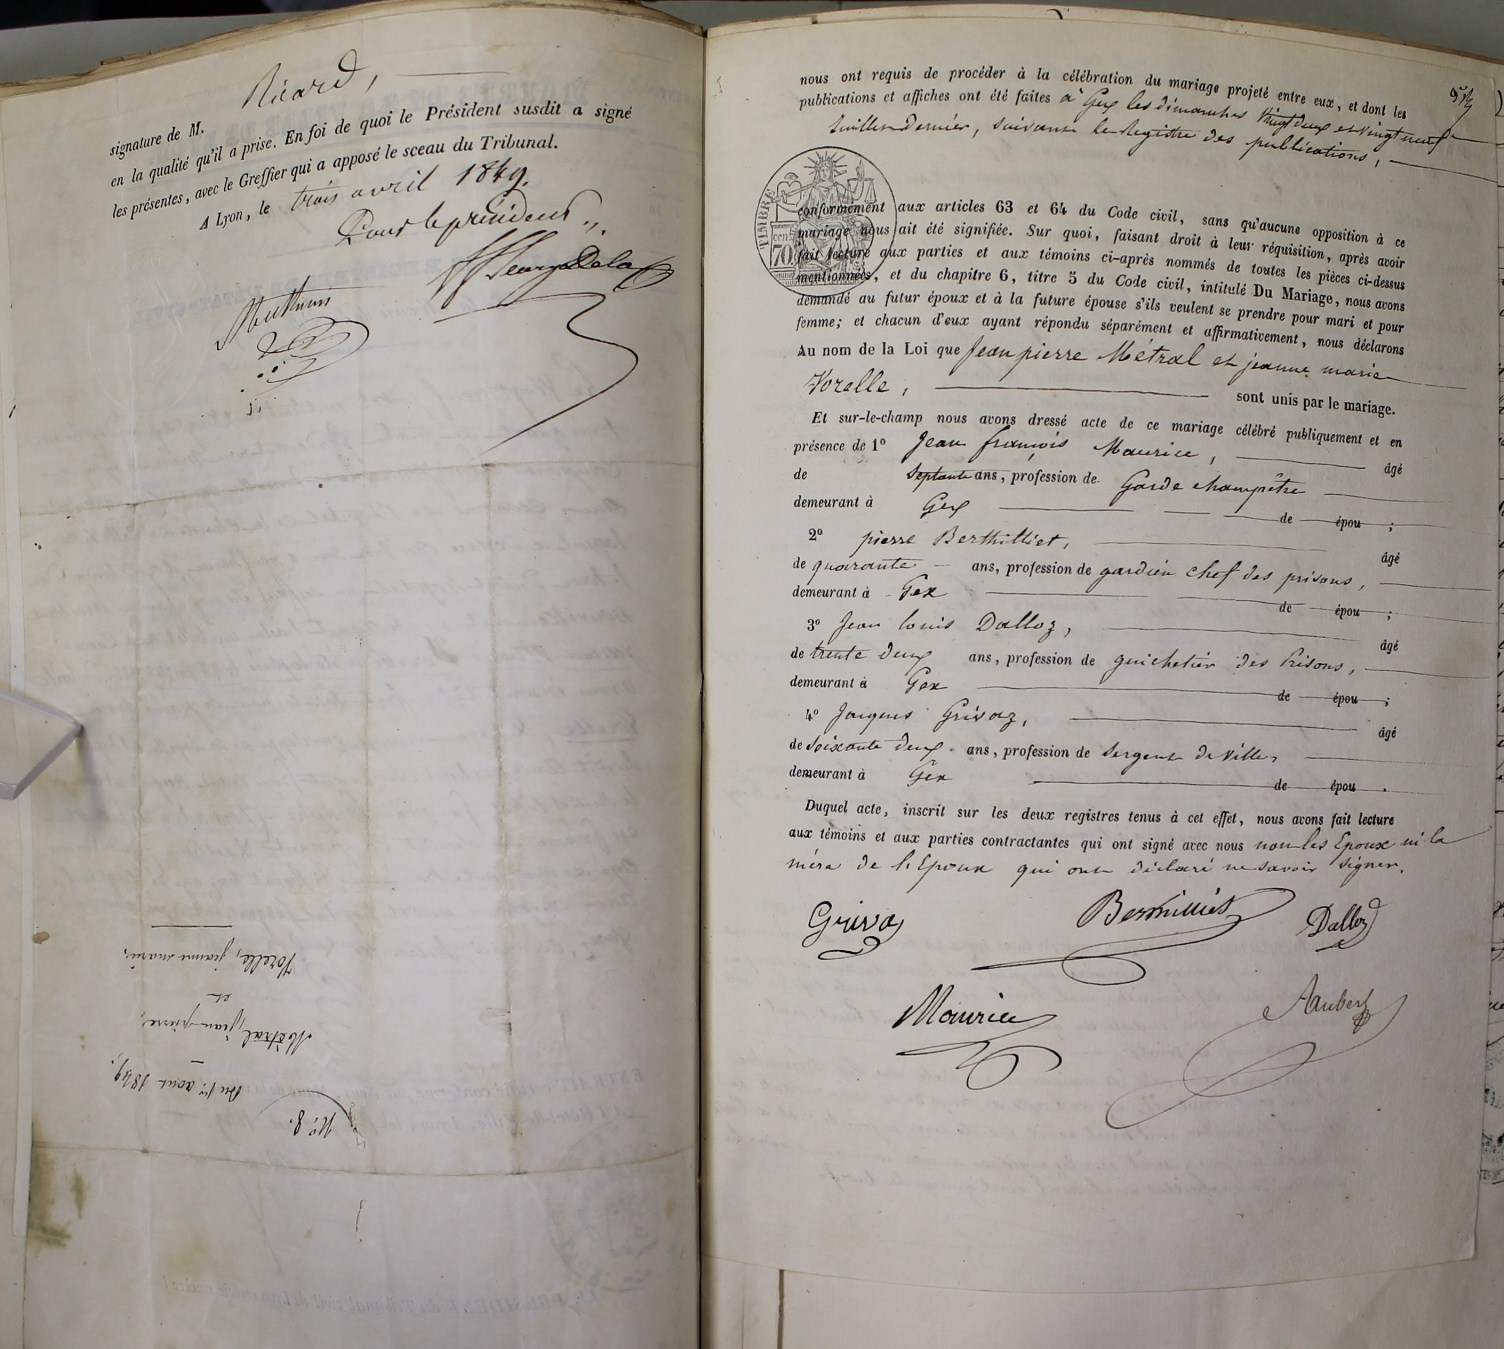 Ricard,
signature de M.
en la qualité qu'il a prise. En foi de quoi le Président susdit a signé
les présentes, avec le Greffier qui a apposé le sceau du Tribunal.
A Lyon, le trois avril 1849.
Pour le président,,
N.º 8.
Du 1.er aout 1849.
Métral, jean pierre,
et
Vorelle, jeanne marie,
nous ont requis de procéder à la célébration du mariage projeté entre eux, et dont les
publications et affiches ont été faites à Gex les dimanches vingt deux et vingt neuf
Juillet dernier, suivant le Registre des publications,
TIMBRE
cen
70
conformément aux articles 63 et 64 du Code civil, sans qu'aucune opposition à ce
mariage nous ait été signifiée. Sur quoi, faisant droit à leur réquisition, après avoir
fait lecture aux parties et aux témoins ci-après nommés de toutes les pièces ci-dessus
mentionnées, et du chapitre 6, titre 5 du Code civil, intitulé Du Mariage, nous avons
demandé au futur époux et à la future épouse s'ils veulent se prendre pour mari et pour
femme; et chacun d'eux ayant répondu séparément et affirmativement, nous déclarons
Au nom de la Loi que Jean pierre Métral et jeanne marie
Vorelle, sont unis par le mariage.
Et sur-le-champ nous avons dressé acte de ce mariage célébré publiquement et en
présence de 1º Jean françois Maurice, âgé
de septante ans, profession de Garde champêtre
demeurant à Gex de épou ;
2º pierre Berthilliet, âgé
de quarante ans, profession de gardien chef des prisons,
demeurant à Gex de épou ;
3º Jean louis Dalloz, âgé
de trente deux ans, profession de guichetier des Prisons,
demeurant à Gex de épou ;
4º Jacques Grivaz, âgé
de soixante deux ans, profession de sergent de Ville,
demeurant à Gex de épou .
Duquel acte, inscrit sur les deux registres tenus à cet effet, nous avons fait lecture
aux témoins et aux parties contractantes qui ont signé avec nous non les Epoux ni la
mère de l'Epoux qui ont déclaré ne savoir signer.
Grivaz Berthilliet Dalloz
Maurice Aubert